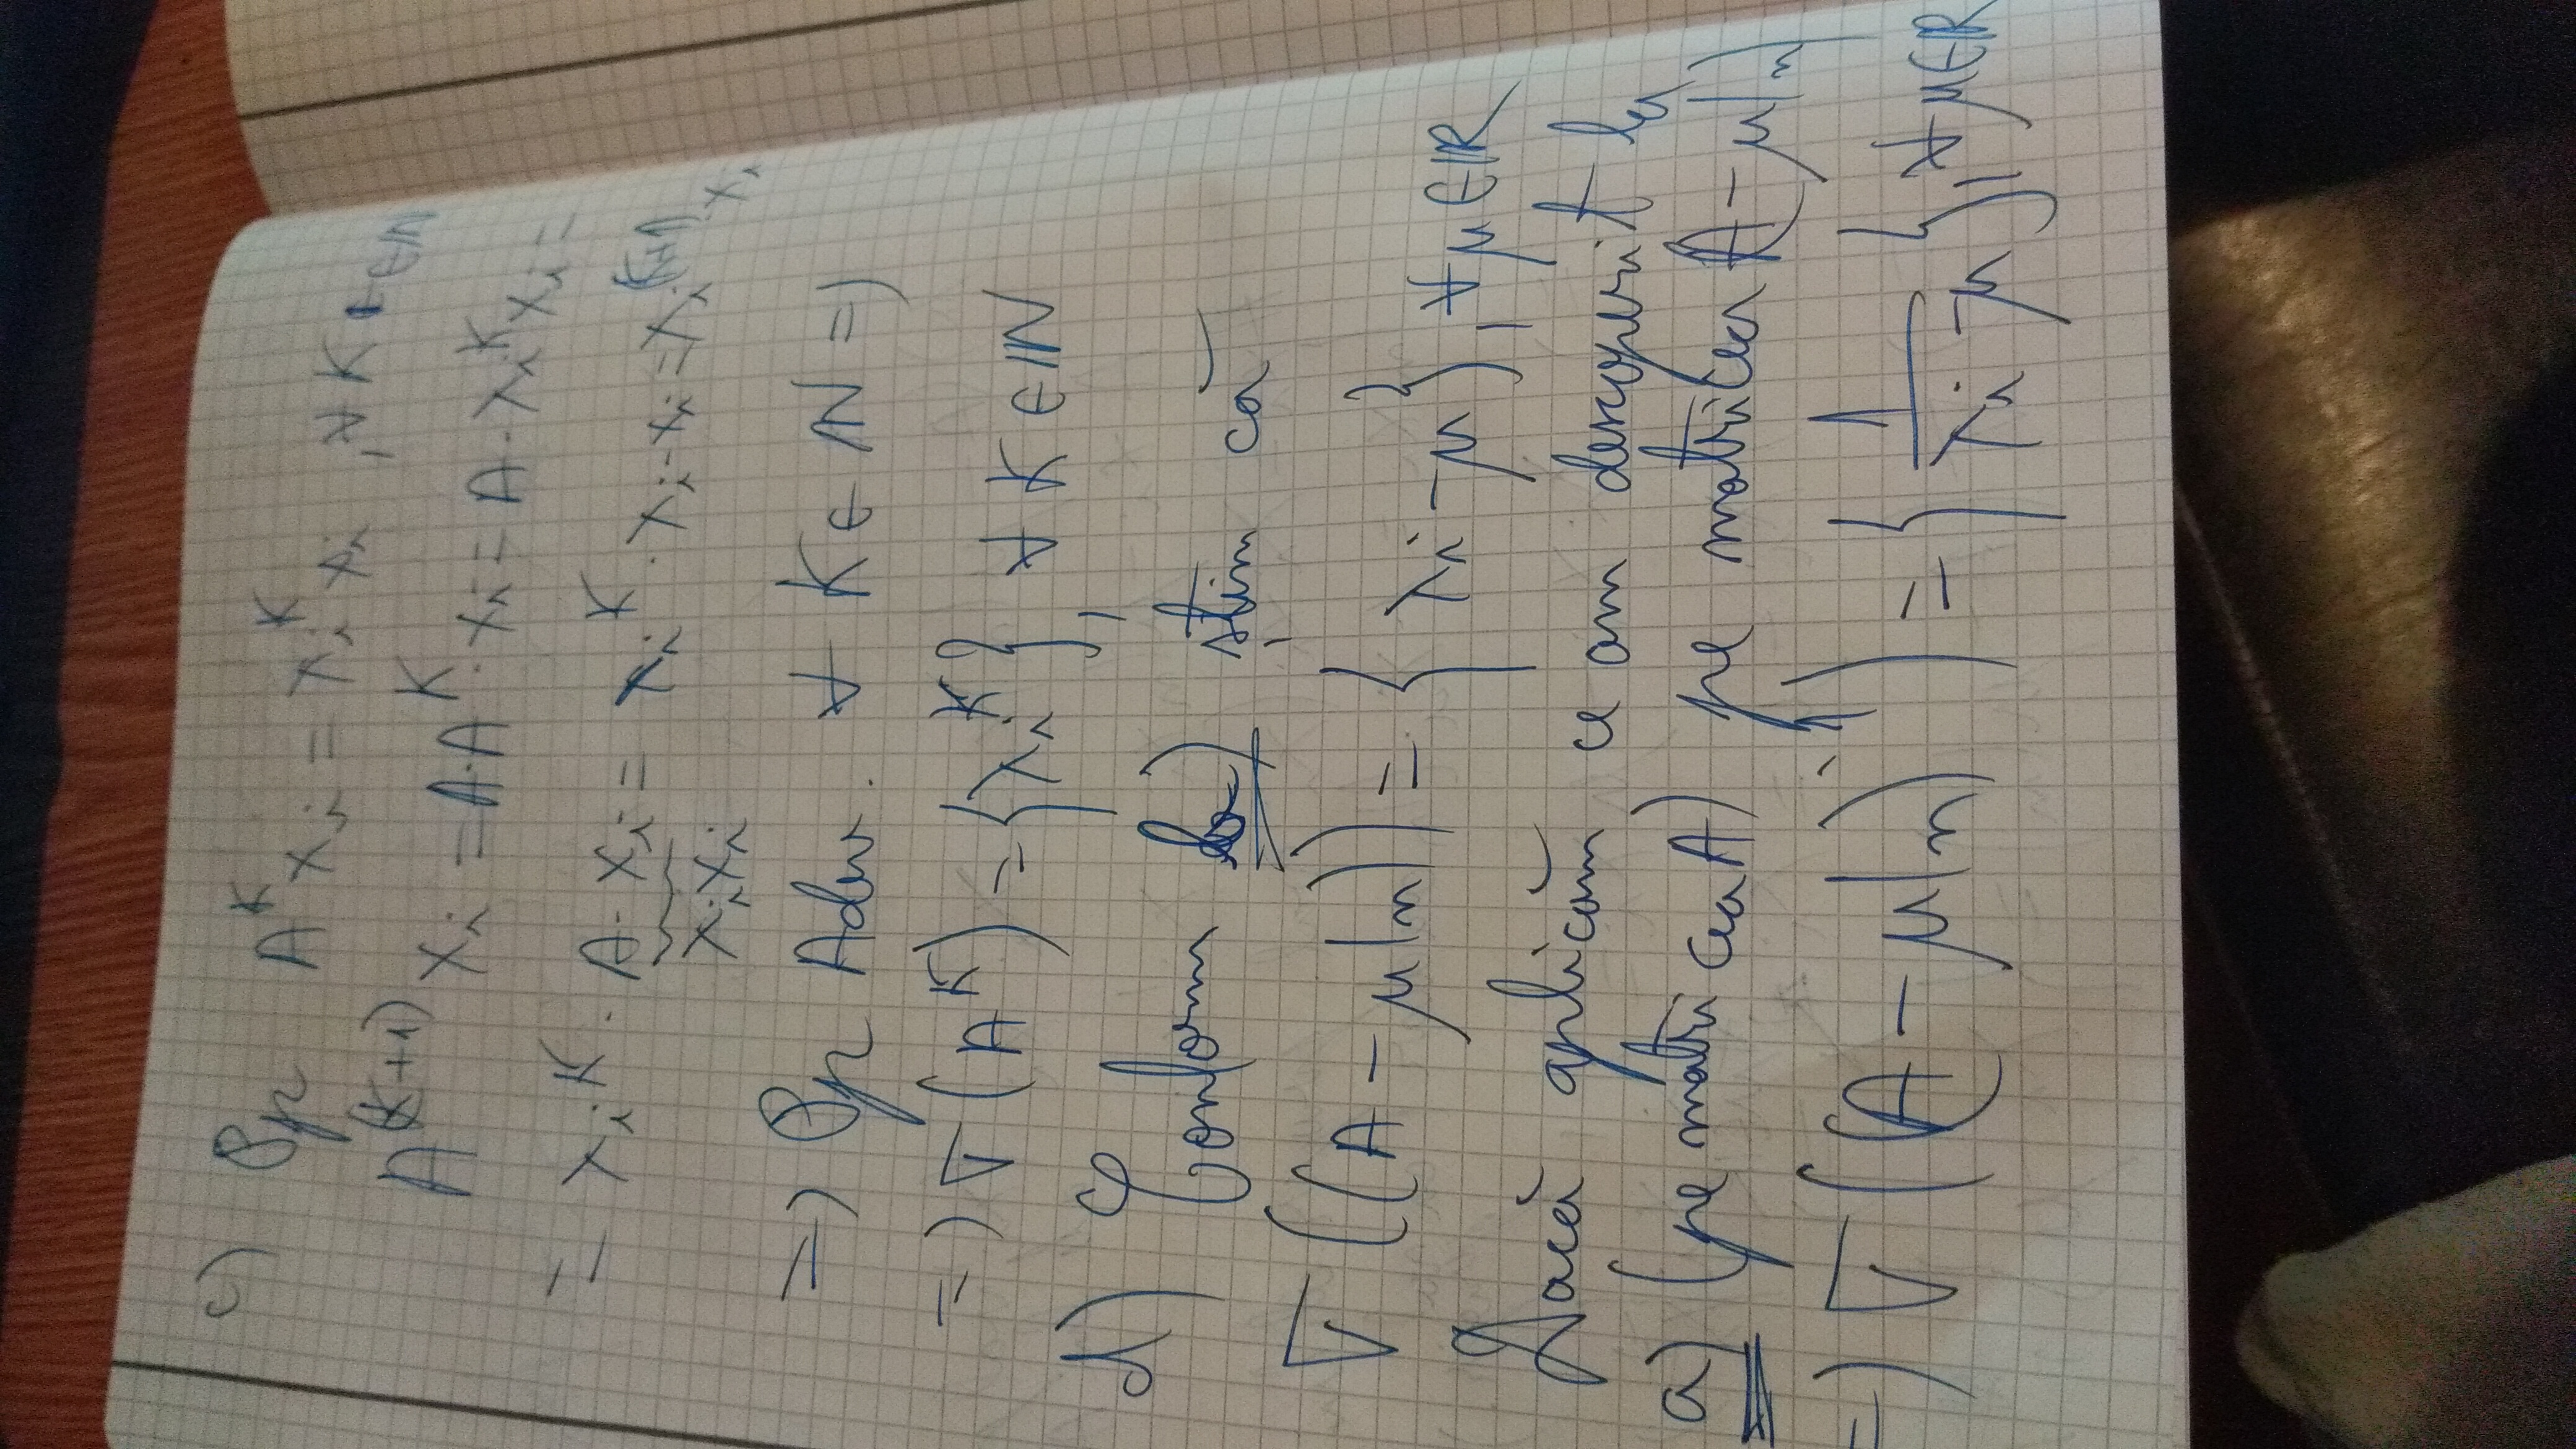 c) Pp A^K x_i = λ_i^K x_i , ∀ K ∈ ℕ
A^(K+1) x_i = A·A^K · x_i = A · λ_i^K x_i =
= λ_i^K · A · x_i = λ_i^K · λ_i · x_i = λ_i^(K+1) · x_i
λ_i x_i
=> Pp Adev. ∀ K ∈ ℕ =>
=> σ(A^K) = {λ_i^K}, ∀ K ∈ ℕ
d) Conform b) știm că
σ((A - μIn)) = {λ_i - μ}, ∀ μ ∈ ℝ
Dacă aplicăm ce am descoperit la
a) (pe matricea A) pe matricea (A - μIn)
=> σ((A - μIn)^-1) = {1/(λ_i - μ)}, ∀ μ ∈ ℝ